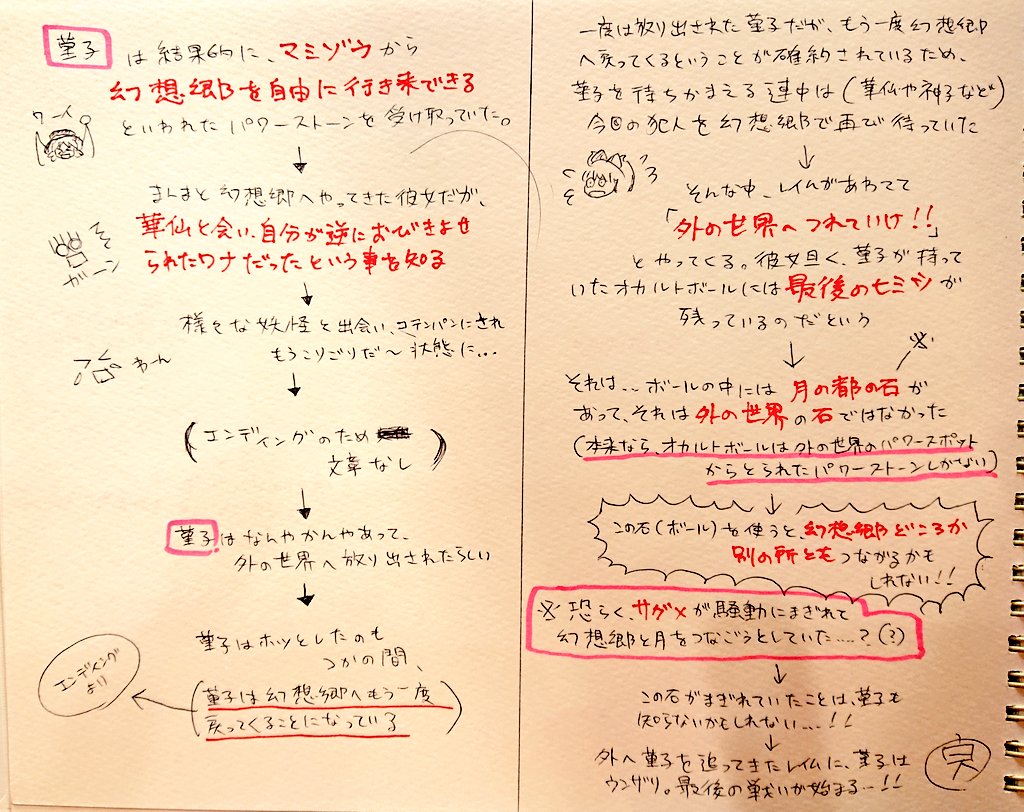 菫子は結果的に、マミゾウから
幻想郷を自由に行き来できる
といわれたパワーストーンを受け取っていた。
ワーイ
↓
まんまと幻想郷へやってきた彼女だが、
華仙と会い、自分が逆におびきよせ
られたワナだったという事を知る
ガーン
↓
様々な妖怪と出会い、コテンパンにされ
もうこりごりだ〜状態に...
わーん
↓
(エンディングのため
文章なし)
↓
菫子はなんやかんやあって、
外の世界へ放り出されたらしい
↓
菫子はホッとしたのも
つかの間、
(菫子は幻想郷へもう一度
戻ってくることになっている)
エンディング
より
一度は放り出された菫子だが、もう一度幻想郷
へ戻ってくるということが確約されているため、
菫子を待ちかまえる連中は(華仙や神子など)
今回の犯人を幻想郷で再び待っていた
↓
そんな中、レイムがあわてて
「外の世界へつれていけ!!」
とやってくる。彼女曰く、菫子が持って
いたオカルトボールには最後のヒミツが
残っているのだという
↓
それは...ボールの中には月の都の石が
あって、それは外の世界の石ではなかった
(本来なら、オカルトボールは外の世界のパワースポット
からとられたパワーストーンしかない)
↓
この石(ボール)を使うと、幻想郷どころか
別の所とをつながるかも
しれない!!
※恐らくサグメが騒動にまぎれて
幻想郷と月をつなごうとしていた....?(?)
↓
この石がまぎれていたことは、菫子も
知らないかもしれない...!!
↓
外へ菫子を追ってきたレイムに、菫子は
ウンザリ。最後の戦いが始まるー!!
完